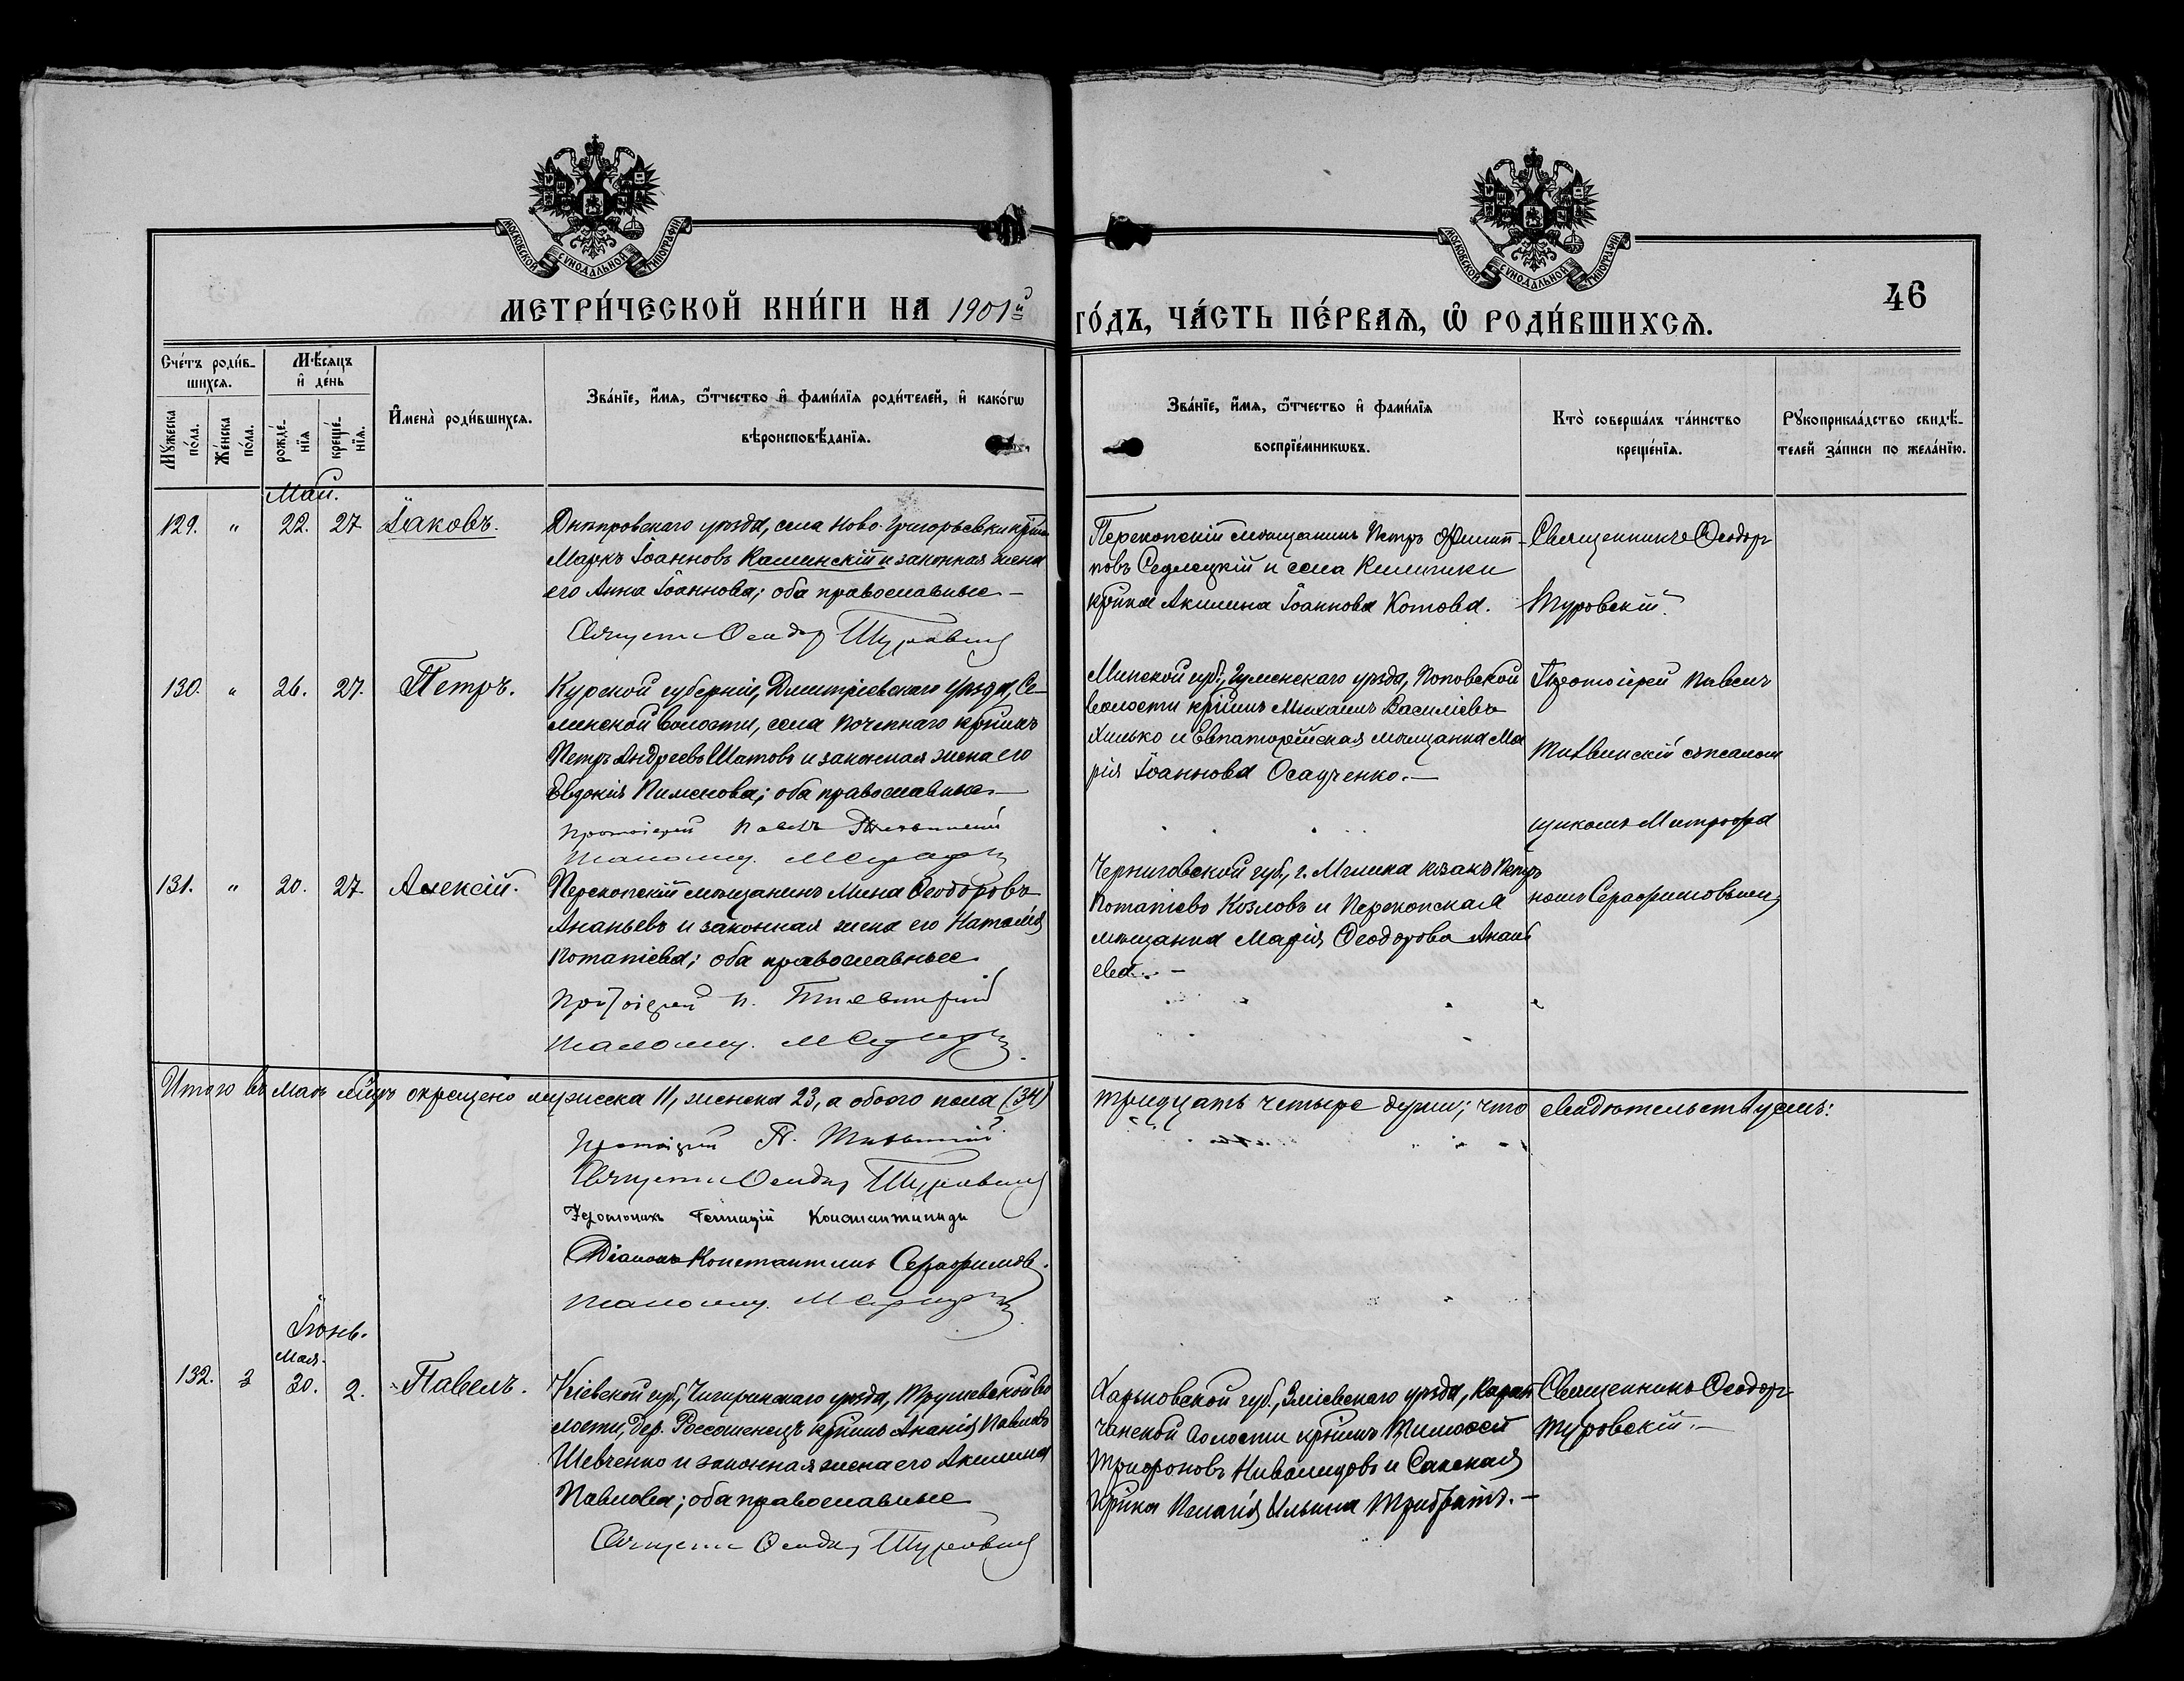 МОСКОВСКОЙ СѴНОДАЛЬНОЙ ТИПОГРАФІИ
МОСКОВСКОЙ СѴНОДАЛЬНОЙ ТИПОГРАФІИ
46
МЕТРИ́ЧЕСКОЙ КНИ́ГИ НА 1901й ГО́ДЪ, ЧА́СТЬ ПЕ́РВАѦ, Ѡ҆ РОДИ́ВШИХСѦ.
Сче́тъ роди́в-
шихсѧ.
Мꙋ́жеска по́ла.
Же́нска по́ла.
Мѣ́сѧцъ
и҆ де́нь
рожде́-
нїѧ
креще́-
нїѧ.
И҆мена̀ роди́вшихсѧ.
Зва́нїе, и҆́мѧ, ѻ҆́тчество и҆ фами́лїѧ роди́телей, и҆ како́гѡ
вѣроисповѣ́данїѧ.
Зва́нїе, и҆́мѧ, ѻ҆́тчество и҆ фами́лїѧ
воспрїе́мникѡвъ.
Кто̀ соверша́лъ та́инство
креще́нїѧ.
Рꙋкоприкла́дство свидѣ́-
телей за́писи по жела́нїю.
Май.
129. " 22. 27 Іаковъ.
Днѣпровскаго уѣзда, села Ново-Григорьевки кр-нъ
Маркъ Іоанновъ Каминскій и законная жена
его Анна Іоаннова; оба православные.—
Священ. Ѳеодор Туровскій
Перекопскій мѣщанинъ Петръ Филип-
повъ Седлецкій и села
кр-нка Акилина Іоаннова Котова.
Священникъ Ѳеодоръ
Туровскій.
130. " 26. 27. Петръ.
Курской губерніи, Дмитріевскаго уѣзда, Се-
линской волости, села Почепнаго кр-нинъ
Петръ Андреевъ Шатовъ и законная жена его
Евдокія Пименова; оба православные.—
Протоіерей Павелъ Тихвинскій
Псаломщ. М. Серафим
Минской губ., Игуменскаго уѣзда, Поповской
волости кр-нинъ Михаилъ Василіевъ
Хилько и Евпаторійская мѣщанка Ма
рія Іоаннова Осадченко.—
Протоіерей Павелъ
Тихвинскій съ псалом
щикомъ Митрофа
номъ Серафимовымъ
131. " 20. 27 Алексій.
Перекопскій мѣщанинъ Мина Ѳеодоровъ
Ананьевъ и законная жена его Наталія
Потапіева; оба православные.
Протоіерей П. Тихвинскій
Псаломщ. М. Серафим
Черниговской губ., г. Мглина казакъ Петръ
Потапіевъ Козловъ и Перекопская
мѣщанка Марія Ѳеодорова Анань
ева. —
Итого въ маѣ мѣсяцѣ окрещено мужеска 11, женска 23, а обоего пола (34) тридцать четыре души; что свидѣтельствуемъ:
Протоіерей П. Тихвинскій
Священ. Ѳеодор Туровскій
Іеромонахъ Геннадій Константиниди
Діаконъ Константинъ Серафимовъ.
Псаломщ. М. Серафим
Іюнь.
Мая.
132. 30. 2. Павелъ.
Кіевской губ., Чигиринскаго уѣзда, Трушевской во
лости, дер. Россошенецъ кр-нинъ Ананія Павловъ
Шевченко и законная жена его Акилина
Павлова; оба православные
Священ. Ѳеодор Туровскій
Харьковской губ., Зміевскаго уѣзда,
чанской волости кр-нинъ Тимоѳей
Трифоновъ и Сакская
кр-нка Пелагія Ильина Трибратъ.—
Священникъ Ѳеодоръ
Туровскій.—